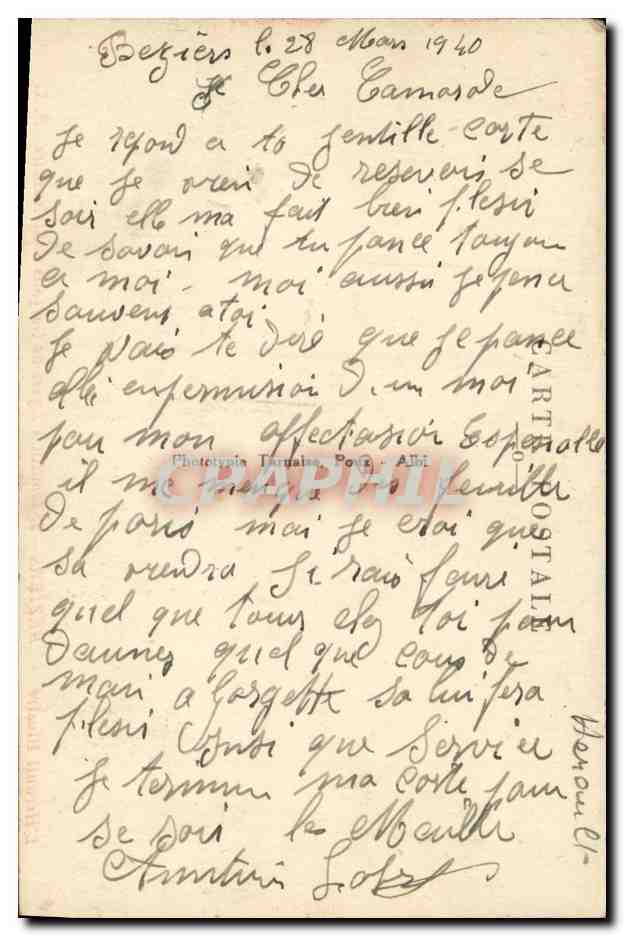 Beziers le 28 Mars 1940
Cher Camarade
Je repond a ta gentille carte
que je vien de resevoir se
soir elle ma fait bien plesir
De savoir que tu pance toujour
a moi - moi aussi je pence
souvent a toi
Je vais te dire que je pance
allé enpermision D. un moi
pour mon affectasion
il me manque des feuille
De paris mai je croi que
sa viendra Je irais faire
quel que tour chez toi pour
Daunner quel que cous de
main a Gorgette sa lui fera
plesir ainsi que
Je termine ma carte pour
se soir les Meuille
Phototypie Tarnaise, Poux - Albi
CARTE POSTALE
Herault
CPAPHIL